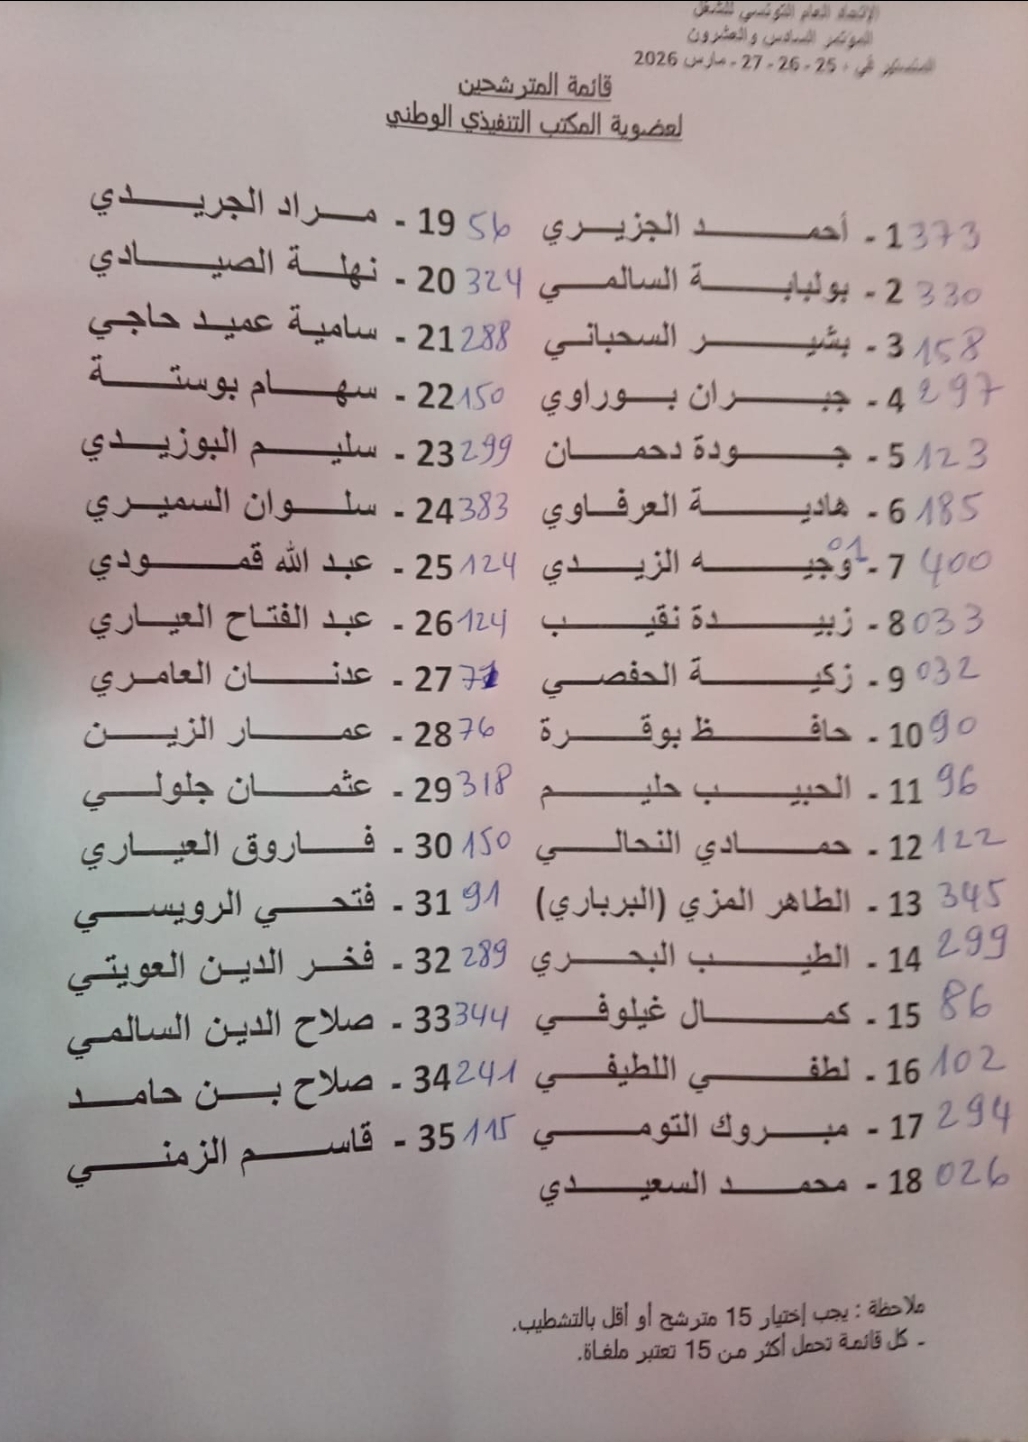 الإتحاد العام التونسي للشغل
المؤتمر السادس والعشرون
المنستير في 25 - 26 - 27 - مارس 2026
قائمة المترشحين
لعضوية المكتب التنفيذي الوطني
1 - أحمد الجزيري 373
2 - بولبابة السالمي 330
3 - بشير السحباني 158
4 - جبران بوراوي 297
5 - جودة دحمان 123
6 - هادية العرفاوي 185
7 - وجيه الزيدي 400 01
8 - زبيدة نقيب 033
9 - زكية الحفصي 032
10 - حافظ بوقرة 90
11 - الحبيب حليم 96
12 - حمادي النحالي 122
13 - الطاهر المزي (البرباري) 345
14 - الطيب البحري 299
15 - كمال غيلوفي 86
16 - لطفي اللطيفي 102
17 - مبروك التومي 294
18 - محمد السعيدي 026
19 - مراد الجريدي 56
20 - نهلة الصيادي 324
21 - سامية عميد حاجي 288
22 - سهام بوستة 150
23 - سليم البوزيدي 299
24 - سلوان السميري 383
25 - عبد الله قمودي 124
26 - عبد الفتاح العياري 124
27 - عدنان العامري
28 - عمار الزين 76
29 - عثمان جلولي 318
30 - فاروق العياري 150
31 - فتحي الرويسي 91
32 - فخر الدين العويتي 289
33 - صلاح الدين السالمي 344
34 - صلاح بن حامد 241
35 - قاسم الزمني 115
ملاحظة : يجب إختيار 15 مترشح أو أقل بالتشطيب.
- كل قائمة تحمل أكثر من 15 تعتبر ملغاة.